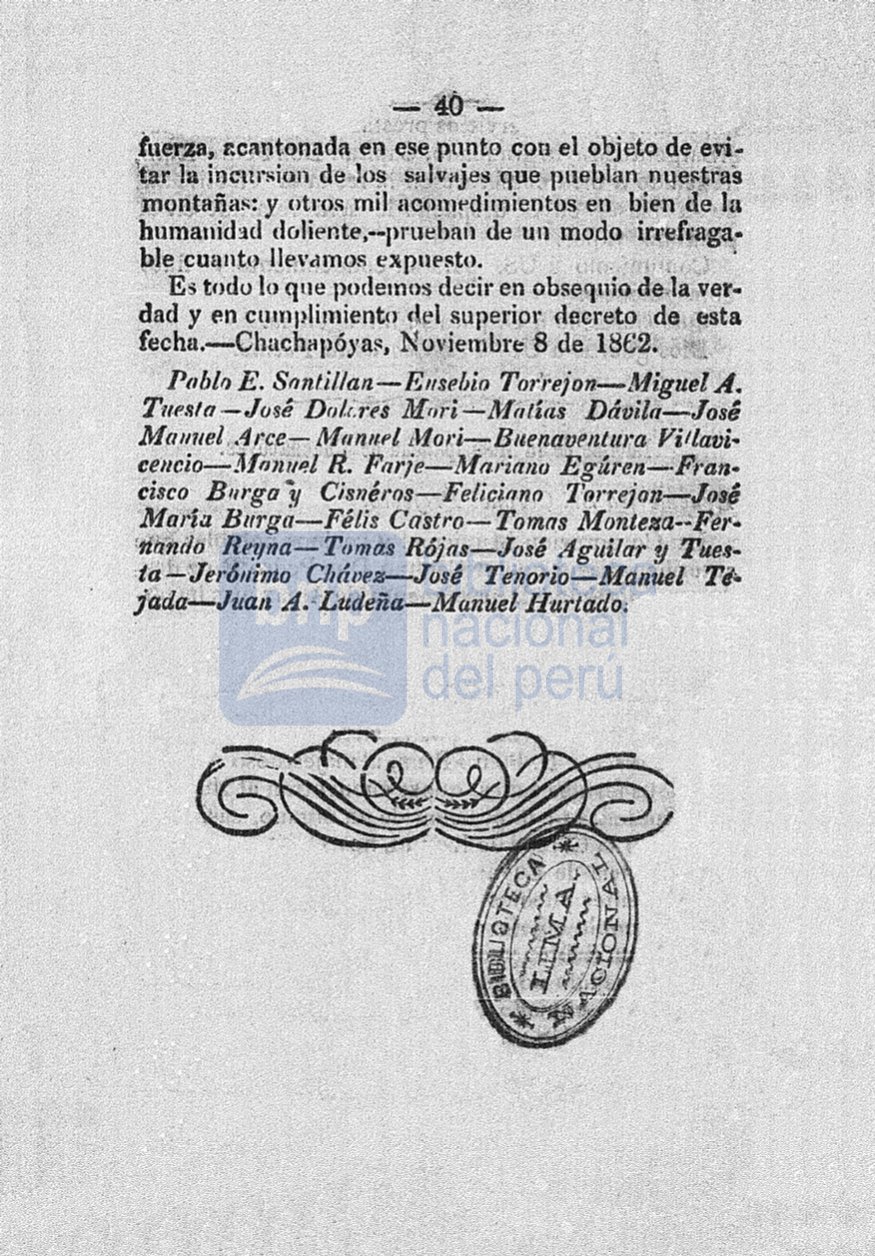 — 40 —
fuerza, acantonada en ese punto con el objeto de evi-
tar la incursion de los salvajes que pueblan nuestras
montañas: y otros mil acomedimientos en bien de la
humanidad doliente,--prueban de un modo irrefraga-
ble cuanto llevamos expuesto.
Es todo lo que podemos decir en obsequio de la ver-
dad y en cumplimiento del superior decreto de esta
fecha.—Chachapóyas, Noviembre 8 de 1862.
Pablo E. Santillan—Eusebio Torrejon—Miguel A.
Tuesta—José Dolores Mori—Matías Dávila—José
Manuel Arce—Manuel Mori—Buenaventura Villavi-
cencio—Manuel R. Farje—Mariano Egúren—Fran-
cisco Burga y Cisnéros—Feliciano Torrejon—José
María Burga—Félis Castro—Tomas Monteza--Fer-
nando Reyna—Tomas Rójas—José Aguilar y Tues-
ta—Jerónimo Chávez—José Tenorio—Manuel Te-
jada—Juan A. Ludeña—Manuel Hurtado.
bnp
biblioteca
nacional
del perú
BIBLIOTECA
LIMA.
NACIONAL